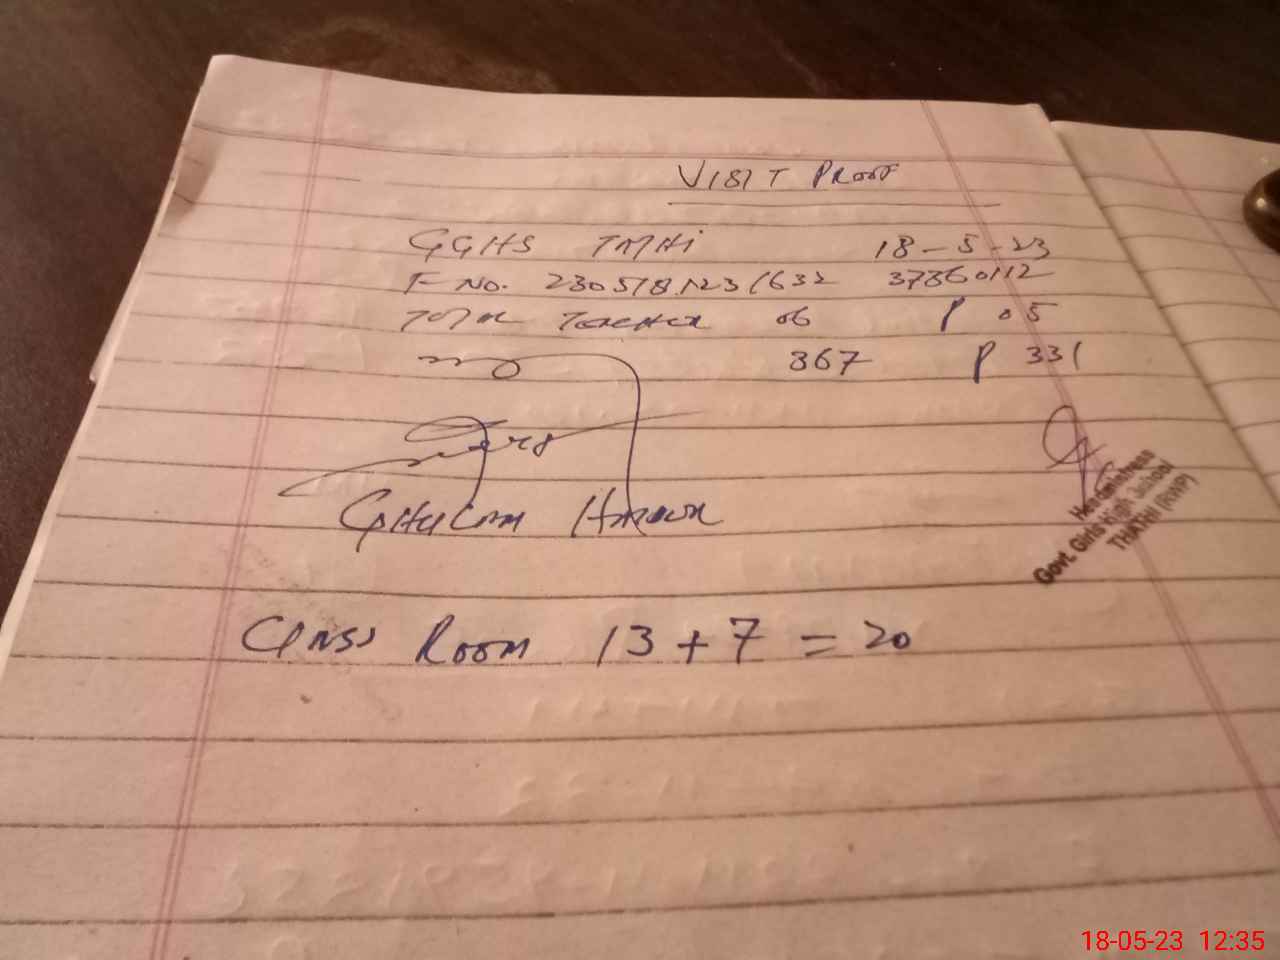 VISIT PROOF
GGHS THATHI 18-5-23
F No. 2305181231632 37360112
TOTAL TEACHER 06 P 05
367 P 331
GHULAM
Headmistress
Govt. Girls High School
THATHI (RWP)
CLASS ROOM 13 + 7 = 20
18-05-23 12:35